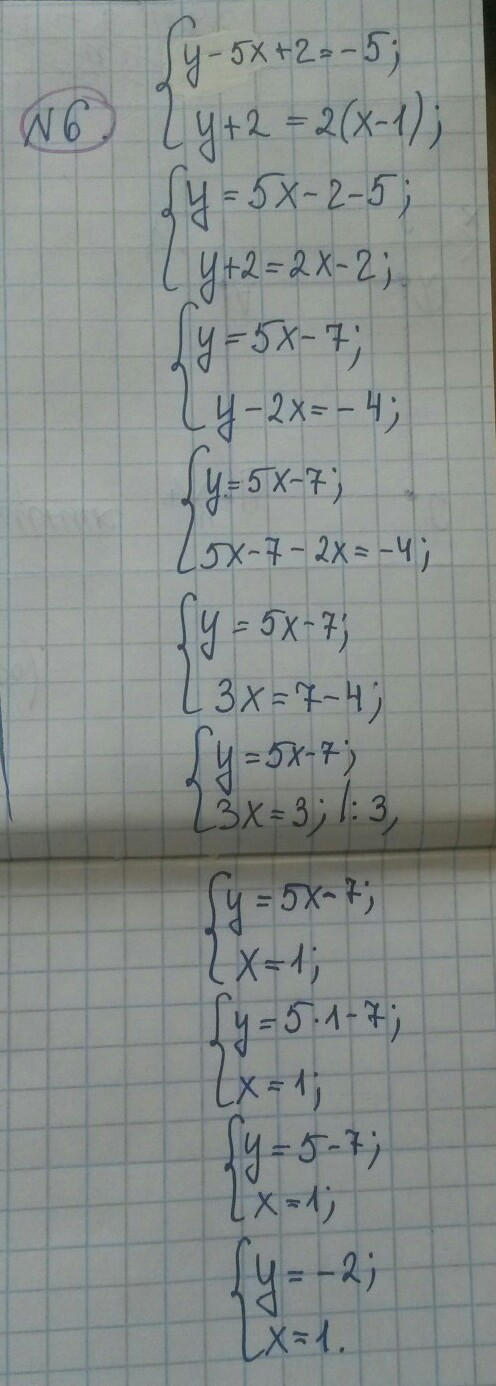 y-5x+2=-5;
N6.
y+2=2(x-1);
y=5x-2-5;
y+2=2x-2;
y=5x-7;
y-2x=-4;
y=5x-7;
5x-7-2x=-4;
y=5x-7;
3x=7-4;
y=5x-7;
3x=3; |:3,
y=5x-7;
x=1;
y=5·1-7;
x=1;
y=5-7;
x=1;
y=-2;
x=1.